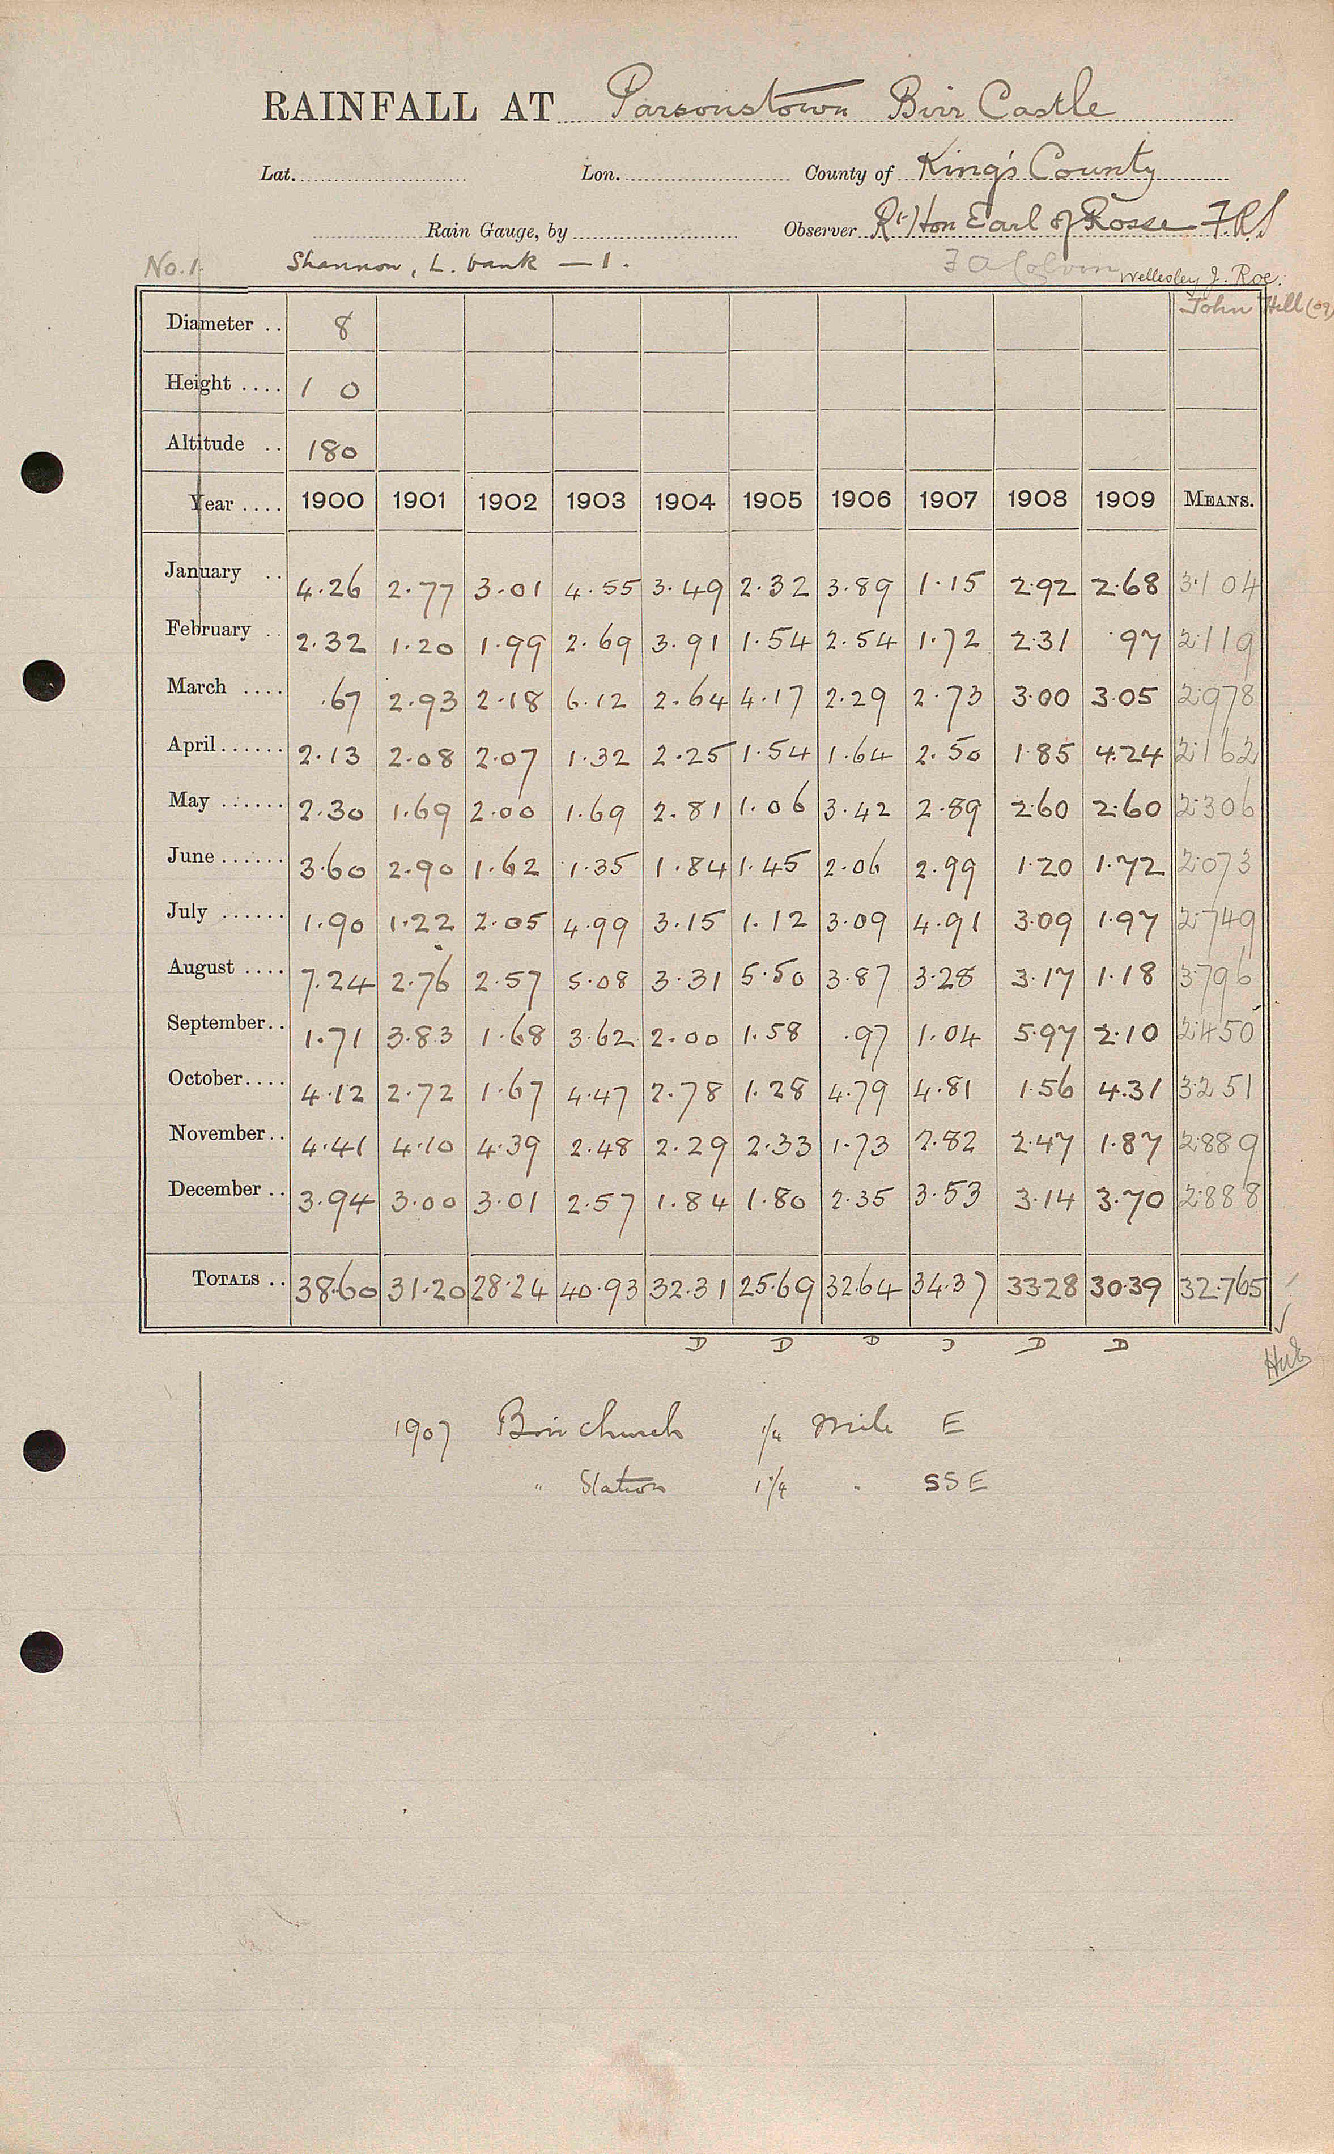 RAINFALL AT Parsonstown Birr Castle
Lat. Lon. County of King's County
Rain Gauge, by Observer Rt Hon Earl of Rosse F.R.S
No. 1 Shannon, L. bank — 1. F A Colvin Wellesley J. Roe.
John Hill (09)
Diameter .. 8
Height .... 1 0
Altitude .. 180
Year .... 1900 1901 1902 1903 1904 1905 1906 1907 1908 1909 MEANS.
January .. 4.26 2.77 3.01 4.55 3.49 2.32 3.89 1.15 2.92 2.68 3.104
February .. 2.32 1.20 1.99 2.69 3.91 1.54 2.54 1.72 2.31 .97 2.119
March .... .67 2.93 2.18 6.12 2.64 4.17 2.29 2.73 3.00 3.05 2.978
April ...... 2.13 2.08 2.07 1.32 2.25 1.54 1.64 2.50 1.85 4.24 2.162
May ...... 2.30 1.69 2.00 1.69 2.81 1.06 3.42 2.89 2.60 2.60 2.306
June ...... 3.60 2.90 1.62 1.35 1.84 1.45 2.06 2.99 1.20 1.72 2.073
July ...... 1.90 1.22 2.05 4.99 3.15 1.12 3.09 4.91 3.09 1.97 2.749
August .... 7.24 2.76 2.57 5.08 3.31 5.50 3.87 3.28 3.17 1.18 3.796
September .. 1.71 3.83 1.68 3.62 2.00 1.58 .97 1.04 5.97 2.10 2.450
October .... 4.12 2.72 1.67 4.47 2.78 1.28 4.79 4.81 1.56 4.31 3.251
November .. 4.41 4.10 4.39 2.48 2.29 2.33 1.73 2.82 2.47 1.87 2.889
December .. 3.94 3.00 3.01 2.57 1.84 1.80 2.35 3.53 3.14 3.70 2.888
TOTALS .. 38.60 31.20 28.24 40.93 32.31 25.69 32.64 34.37 33.28 30.39 32.765
D D D D D D
1907 Birr Church 1/4 Mile E
" Station 1 1/4 " SSE